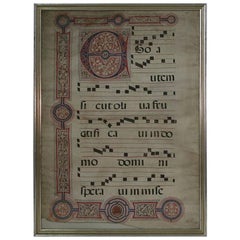 Ego a
utem
si cut oli ua fru
ctifi ca ui in do
mo domi ni
spera ui in mise